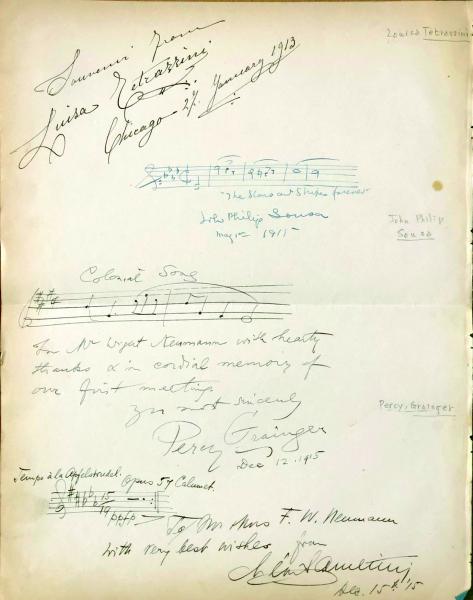 Souvenir from
Luisa Tetrazzini.
Chicago 27. January 1913
Louisa Tetrazzini
"The Stars and Stripes forever"
John Philip Sousa
1915
John Philip
Sousa
Colonial Song
For Mr Neumann with hearty
thanks & in cordial memory of
our first meeting
yrs most sincerely
Percy Grainger
Dec 12. 1915
Percy, Grainger
Tempo à la Apfelstrudel. Opus 57 Calumet.
15
19
pppp
To Mr & Mrs F. W. Neumann
with very best wishes from
Dec. 15th '15